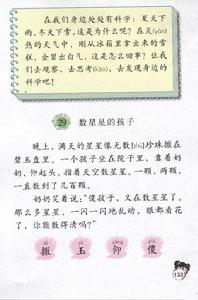 在我们身边处处有科学：夏天下
雨，冬天下雪，这是为什么呢？在炎(yán)
热的天气中，刚从冰箱里拿出来的雪
糕，会冒出白气，这是怎么回事？让我
们去观察，去思考(kǎo)，去发现身边的
科学吧！
29 数星星的孩子
晚上，满天的星星像无数[shù]珍珠撒在
碧玉盘里。一个孩子坐在院子里，靠着奶
奶，仰起头，指着天空数星星。一颗，两颗，
一直数到了几百颗。
奶奶笑着说：“傻孩子，又在数星星了。
那么多星星，一闪一闪地乱动，眼都看花
了，你能数得清吗？”
sā yù yǎng shǎ
撒 玉 仰 傻
133